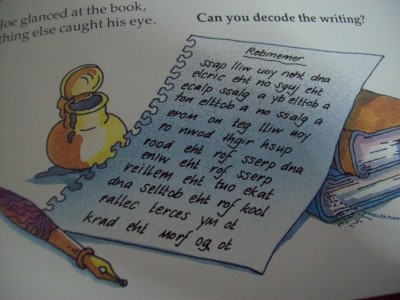 Joe glanced at the book,
thing else caught his eye.
Can you decode the writing?
Rebmemer
ssap lliw uoy neht dna
elcric eht no sguj eht
ecalp ssalg a yb elttob a
ton elttob a no ssalg a
erom on teg lliw uoy
ro nwod thgir hsup
rood eht rof sserp dna
eniw eht rof sserp
eht tuo ekat
dna selttob eht rof kool
rallec terces ym ot
krad eht morf og ot